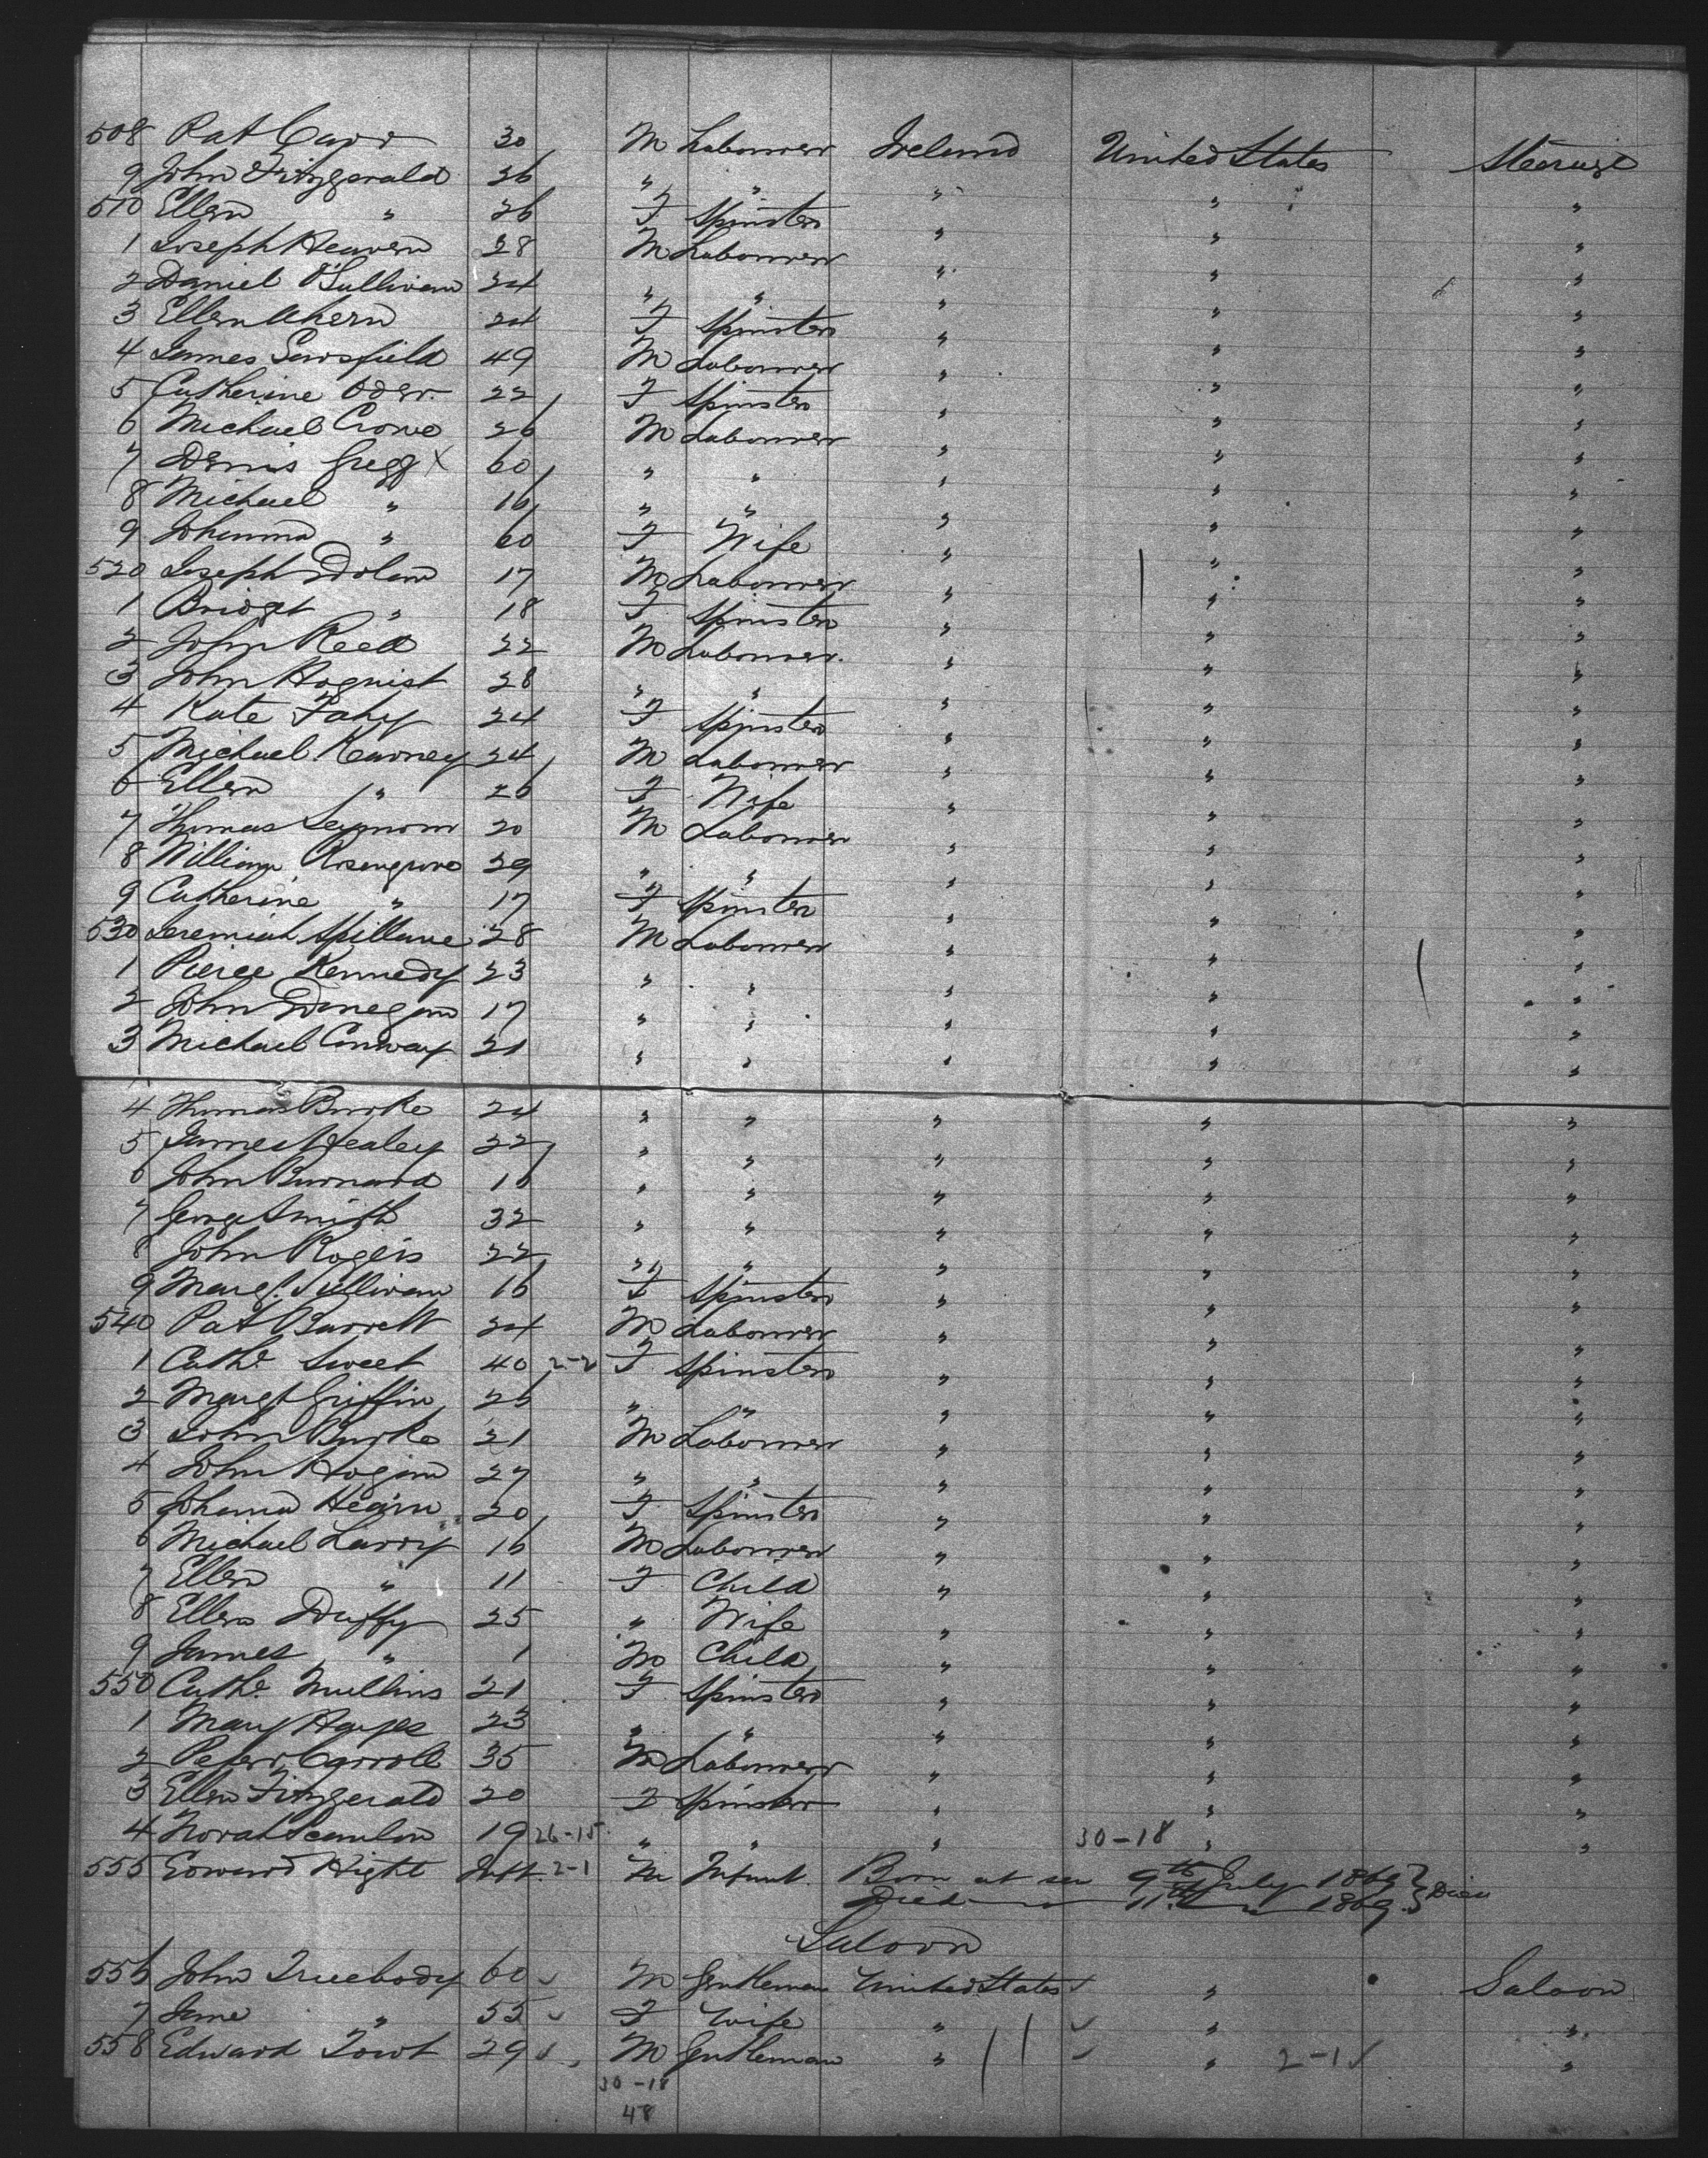 508 Pat Carr 30 M Labourer Ireland United States Steerage
9 John Fitzgerald 26 " " " " "
510 Ellen " 26 F Spinster " " "
1 Joseph Heaven 28 M Labourer " " "
2 Daniel O'Sullivan 24 " " " " "
3 Ellen Ahern 24 F Spinster " " "
4 James Sarsfield 49 M Labourer " " "
5 Catherine 22 F Spinster " " "
6 Michael Crowe 26 M Labourer " " "
7 Denis Gregg X 60 " " " " "
8 Michael " 16 " " " " "
9 Johanna " 60 F Wife " " "
520 Joseph Dolan 17 M Labourer " " "
1 Bridget " 18 F Spinster " " "
2 John Reed 22 M Labourer " " "
3 John Hoquist 28 " " " " "
4 Kate Fahy 24 F Spinster " " "
5 Michael Kearney 24 M Labourer " " "
6 Ellen " 26 F Wife " " "
7 Thomas Seymour 20 M Labourer " " "
8 William Rosengrove 29 " " " " "
9 Catherine " 17 F Spinster " " "
530 Jeremiah Spillane 28 M Labourer " " "
1 Pierce Kennedy 23 " " " " "
2 John Donegan 17 " " " " "
3 Michael Conway 21 " " " " "
4 Thomas Burke 24 " " " " "
5 James Healey 22 " " " " "
6 John Burnard 16 " " " " "
7 George Smith 32 " " " " "
8 John Rogers 22 " " " " "
9 Margt. Sullivan 16 F Spinster " " "
540 Pat Barrett 24 M Labourer " " "
1 Cathe. Sweet 40 2-2 F Spinster " " "
2 Margt Griffin 26 " " " " "
3 John Burke 21 M Labourer " " "
4 John Hogan 27 " " " " "
5 Johanna Hearn 20 F Spinster " " "
6 Michael Larry 16 M Labourer " " "
7 Ellen " 11 F Child " " "
8 Ellen Duffy 25 " Wife " " "
9 James " 1 M Child " " "
550 Cathe. Mullins 21 F Spinster " " "
1 Mary Hayes 23 " " " " "
2 Peter Carroll 35 M Labourer " " "
3 Ellen Fitzgerald 20 F Spinster " " "
4 Norah Scanlon 19 26-15 " " " 30-18 " "
555 Edward Hight Inft. 2-1 M Infant. Born at sea 9th July 1869 } Died
Died 11th " 1869.
Saloon
556 John Truebody 60 M Gentleman United States " Saloon
7 Jane " 55 F Wife " " "
558 Edward Towt 29 M Gentleman " " 2-1 "
30-18
48